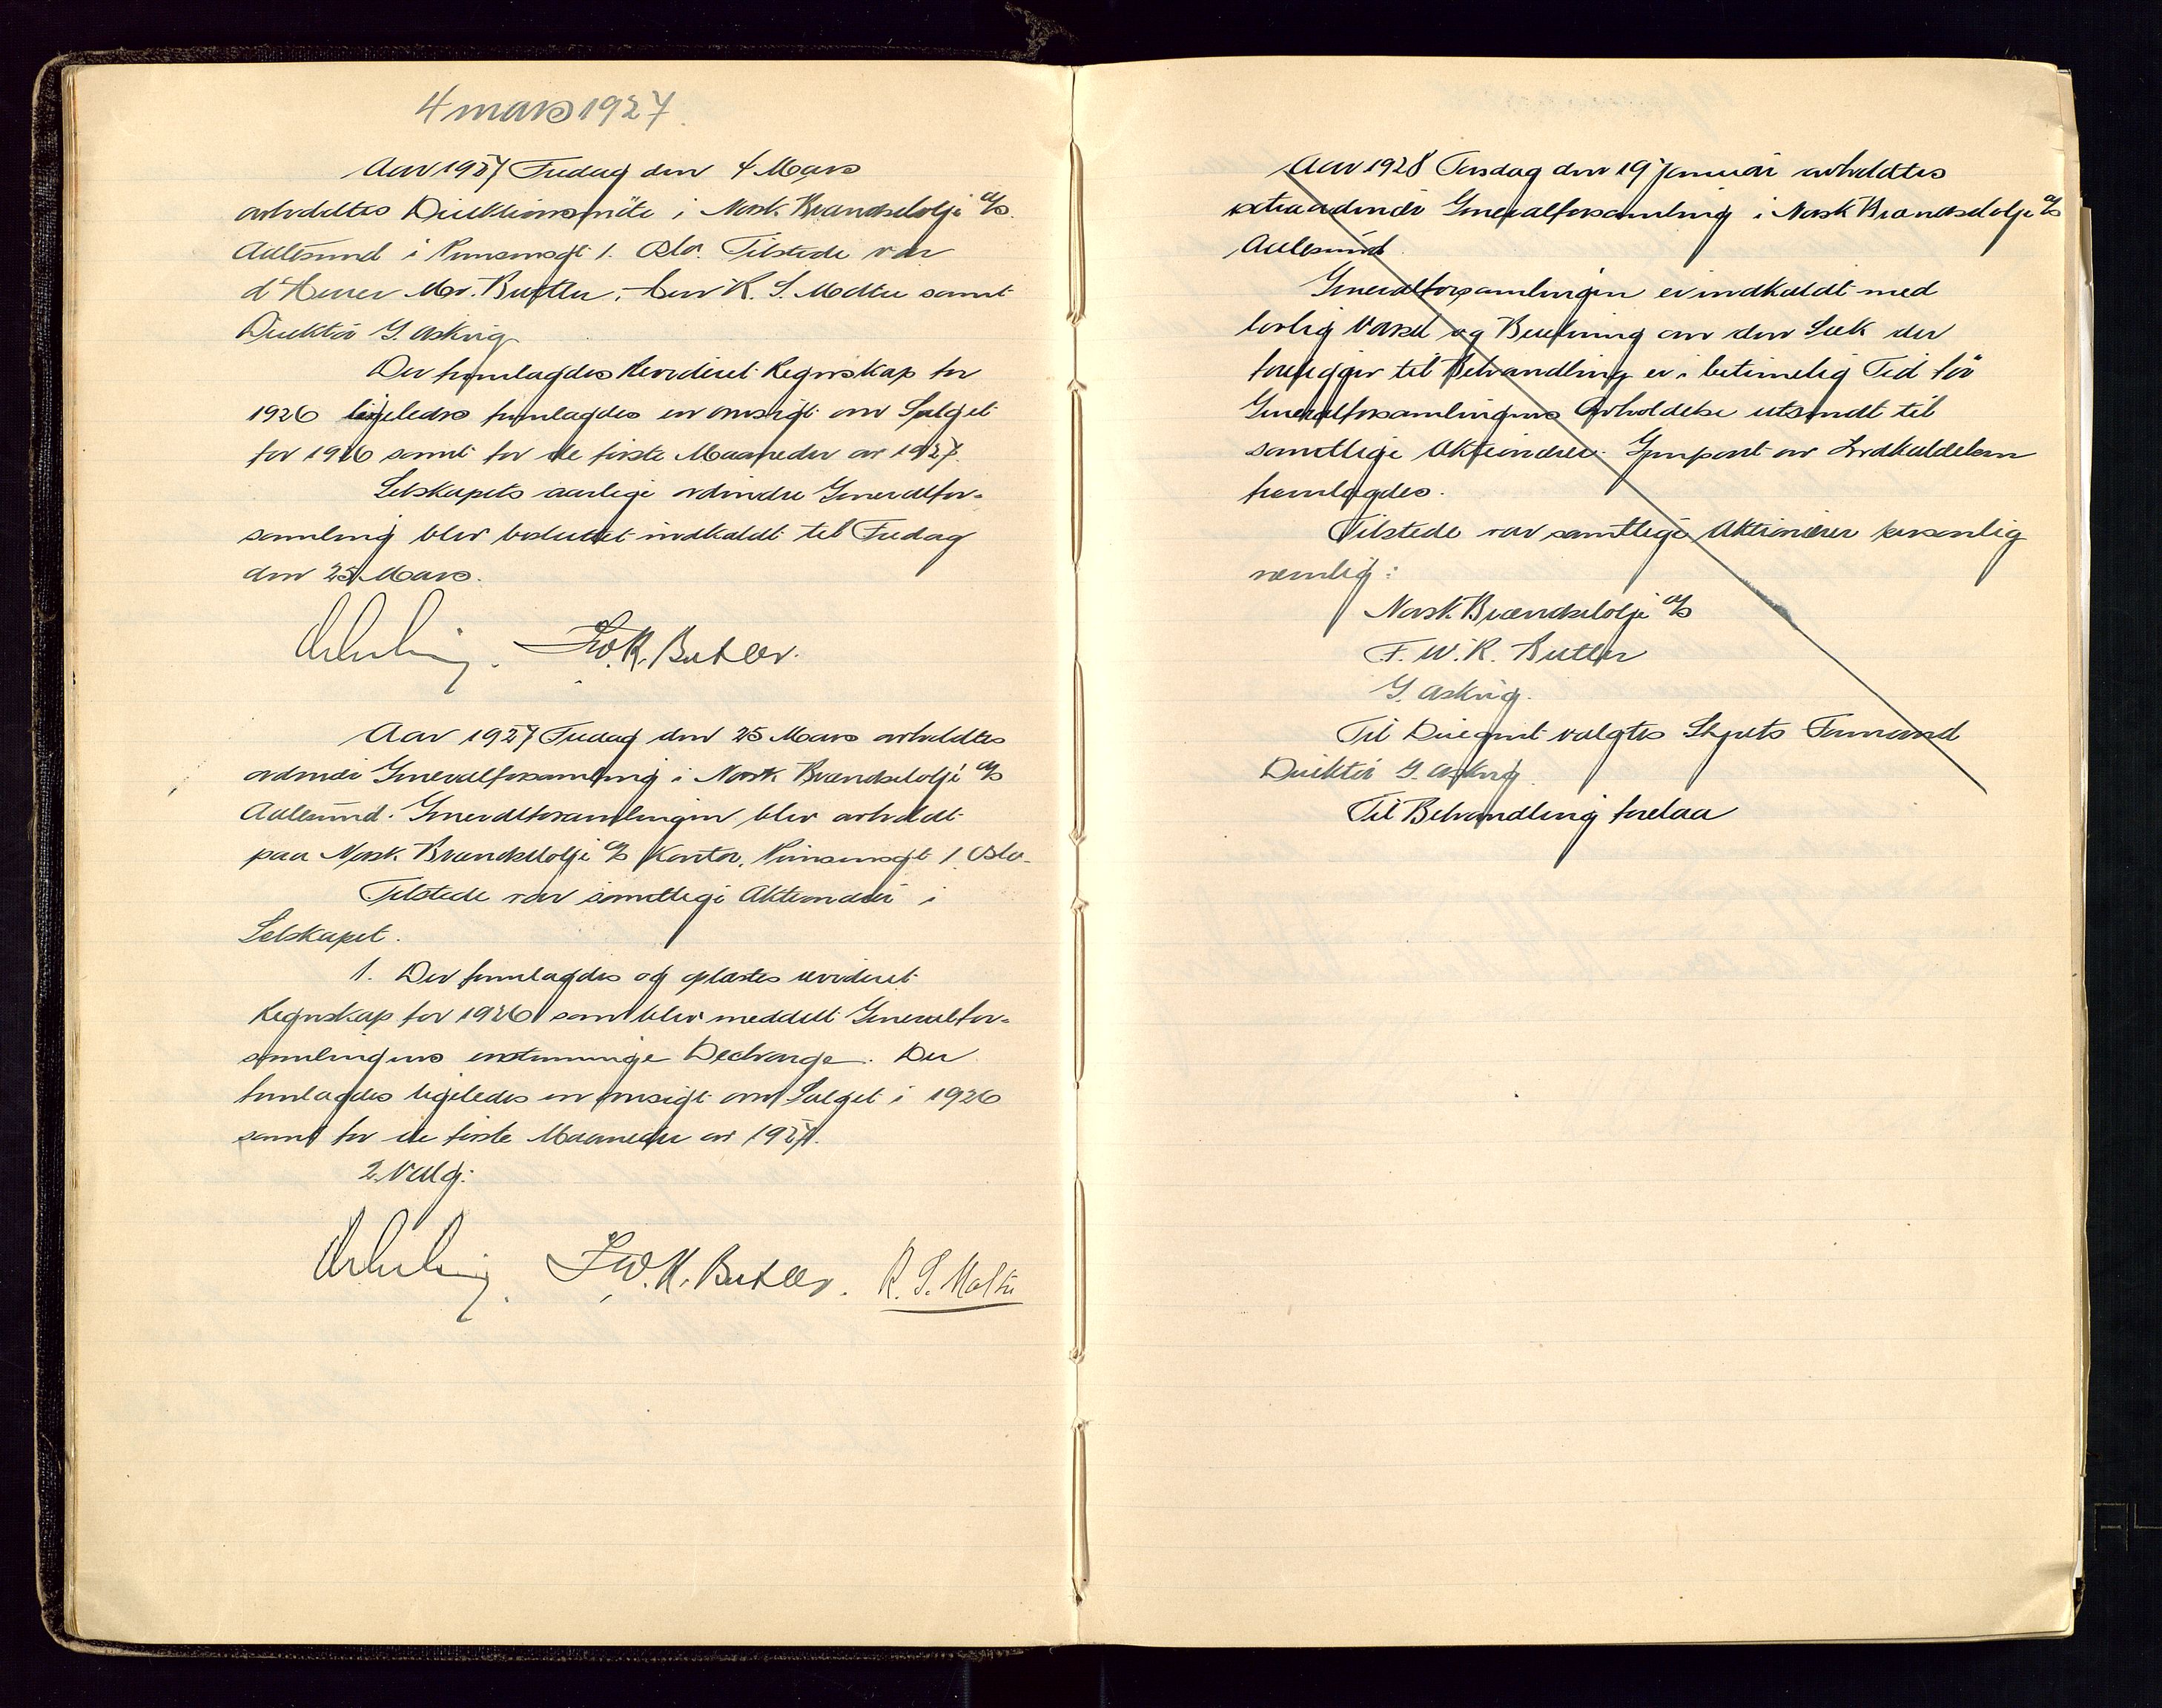 4 mars 1927.
Aar 1927 Fredag den 4 Mars
avholdtes Direktionsmöte i Norsk Brændselolje A/S
Aalesund i Prinsensgt 1. Oslo. Tilstede var
d'Herrer Mr. Butler, herr R. S. Moltu samt
Direktör G. Askvig
Der fremlagdes Revideret Regnskap for
1926 ligeledes fremlagdes en oversigt over Salget
for 1926 samt for de förste Maaneder av 1927.
Selskapets aarlige ordinære Generalfor-
samling blev besluttet indkaldt til Fredag
den 25 Mars.
F.W.R. Butler.
Aar 1927 Fredag den 25 Mars avholdtes
ordinær Generalforsamling i Norsk Brændselolje A/S
Aalesund. Generalforsamlingen blev avholdt
paa Norsk Brændselolje A/S Kontor, Prinsensgt 1. Oslo.
Tilstede var samtlige Aktionærer i
Selskapet.
1. Der fremlagdes og oplæstes revideret
Regnskap for 1926 som blev meddelt Generalfor-
samlingens enstemmige Decharge. Der
fremlagdes ligeledes en oversigt over Salget i 1926
samt for de förste Maaneder av 1927.
2. Valg:
F.W.R. Butler. R. S. Moltu
Aar 1928 Torsdag den 19 Januar avholdtes
extraordinær Generalforsamling i Norsk Brændselolje A/S
Aalesund.
Generalforsamlingen er indkaldt med
lovlig Varsel og Beretning om den Sak der
foreligger til Behandling er i betimelig Tid för
Generalforsamlingens Avholdelse utsendt til
samtlige Aktionærer. Genpart av Indkaldelsen
fremlagdes.
Tilstede var samtlige Aktionærer personlig
nemlig:
Norsk Brændselolje A/S
F. W. R. Butler
G. Askvig.
Til Dirigent valgtes Styrets Formand
Direktör G. Askvig
Til Behandling forelaa